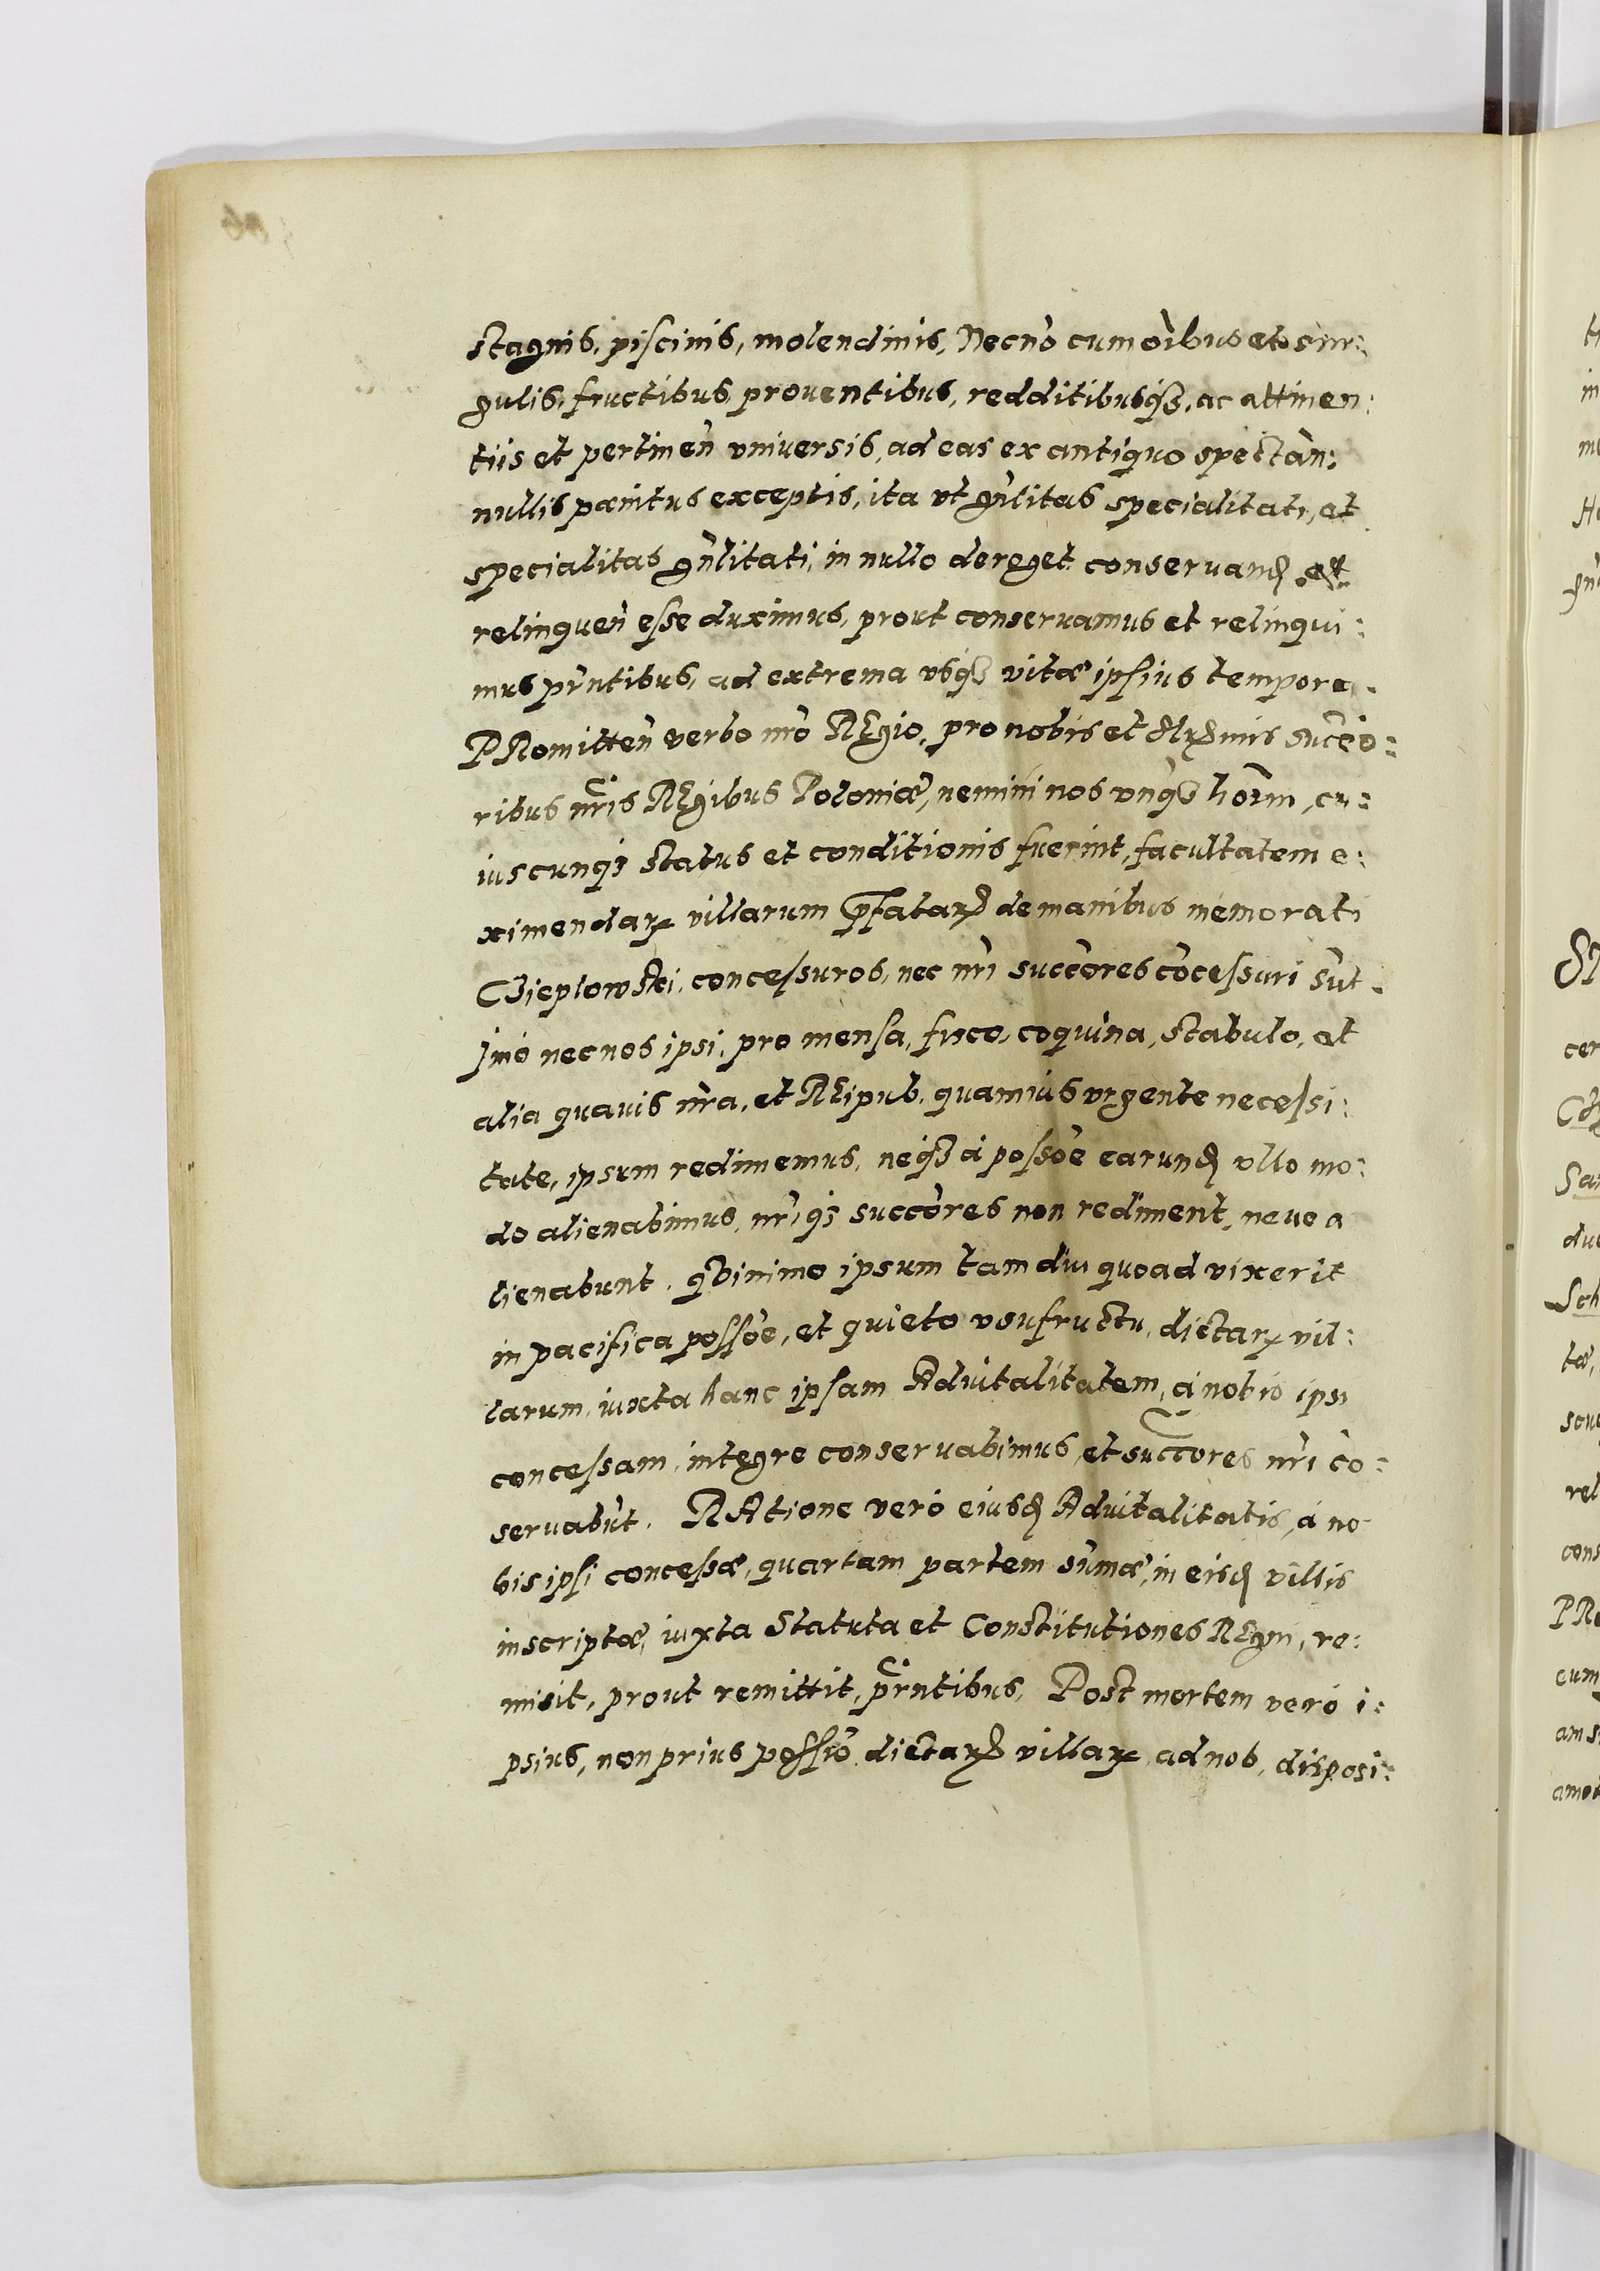 stagnis, piscinis, molendinis, Necnō cum oībus et sin:
gulis, fructibus, prouentibus, redditibusq₃, ac attinen:
tiis et pertineñ vniuersis, ad eas ex antiquo spectañ:
nullis pænitus exceptis, ita vt gñlitas specialitati, et
specialitas gñlitati, in nullo dereget conseruand̨ et
relinqueñ esse duximus, prout conseruamus et relinqui:
mus pr̃ntibus, ad extrema vsq₃ vitæ ipsius tempora.
PRomitteñ verbo nr̃o REgio, pro nobis et Srx̃mis succẽo:
ribus nr̃is REgibus Poloniæ, nemini nos vnq₃ hoĩm, cu:
iuscunq₃ status et conditionis fuerint, facultatem e:
ximendarꝝ villarum p̃fatarꝝ de manibus memorati
Czieplowski, concessuros, nec nr̃i succõres cõcessuri sũt.
Imò nec nos ipsi, pro mensa, fisco, coquina, stabulo, et
alia quauis nr̃a, et REipub, quamuis vrgente necessi:
tate, ipsum redimemus, neq₃ à possõe earund̨ vllo mo:
do alienabimus, nr̃iq₃ succõres non rediment, neue a
lienabunt. qũinimo ipsum tam diu quoad vixerit
in pacifica possõe, et quieto vsufructu, dictarꝝ vil:
larum, iuxta hanc ipsam Aduitalitatem, à nobis ipsi
concessam, integre conseruabimus, et succõres nr̃i cõ:
seruabũt. RAtione verò eiusd̨ Aduitalitatis, à no
bis ipsi concessæ, quartam partem sũmæ, in eisd̨ villis
inscriptæ, iuxta Statuta et Constitutiones REgni, re:
misit, prout remittit, pr̃ntibus. Post mortem verò i:
psius, non prius possiõ dictarꝝ villarꝝ ad nob, disposi: